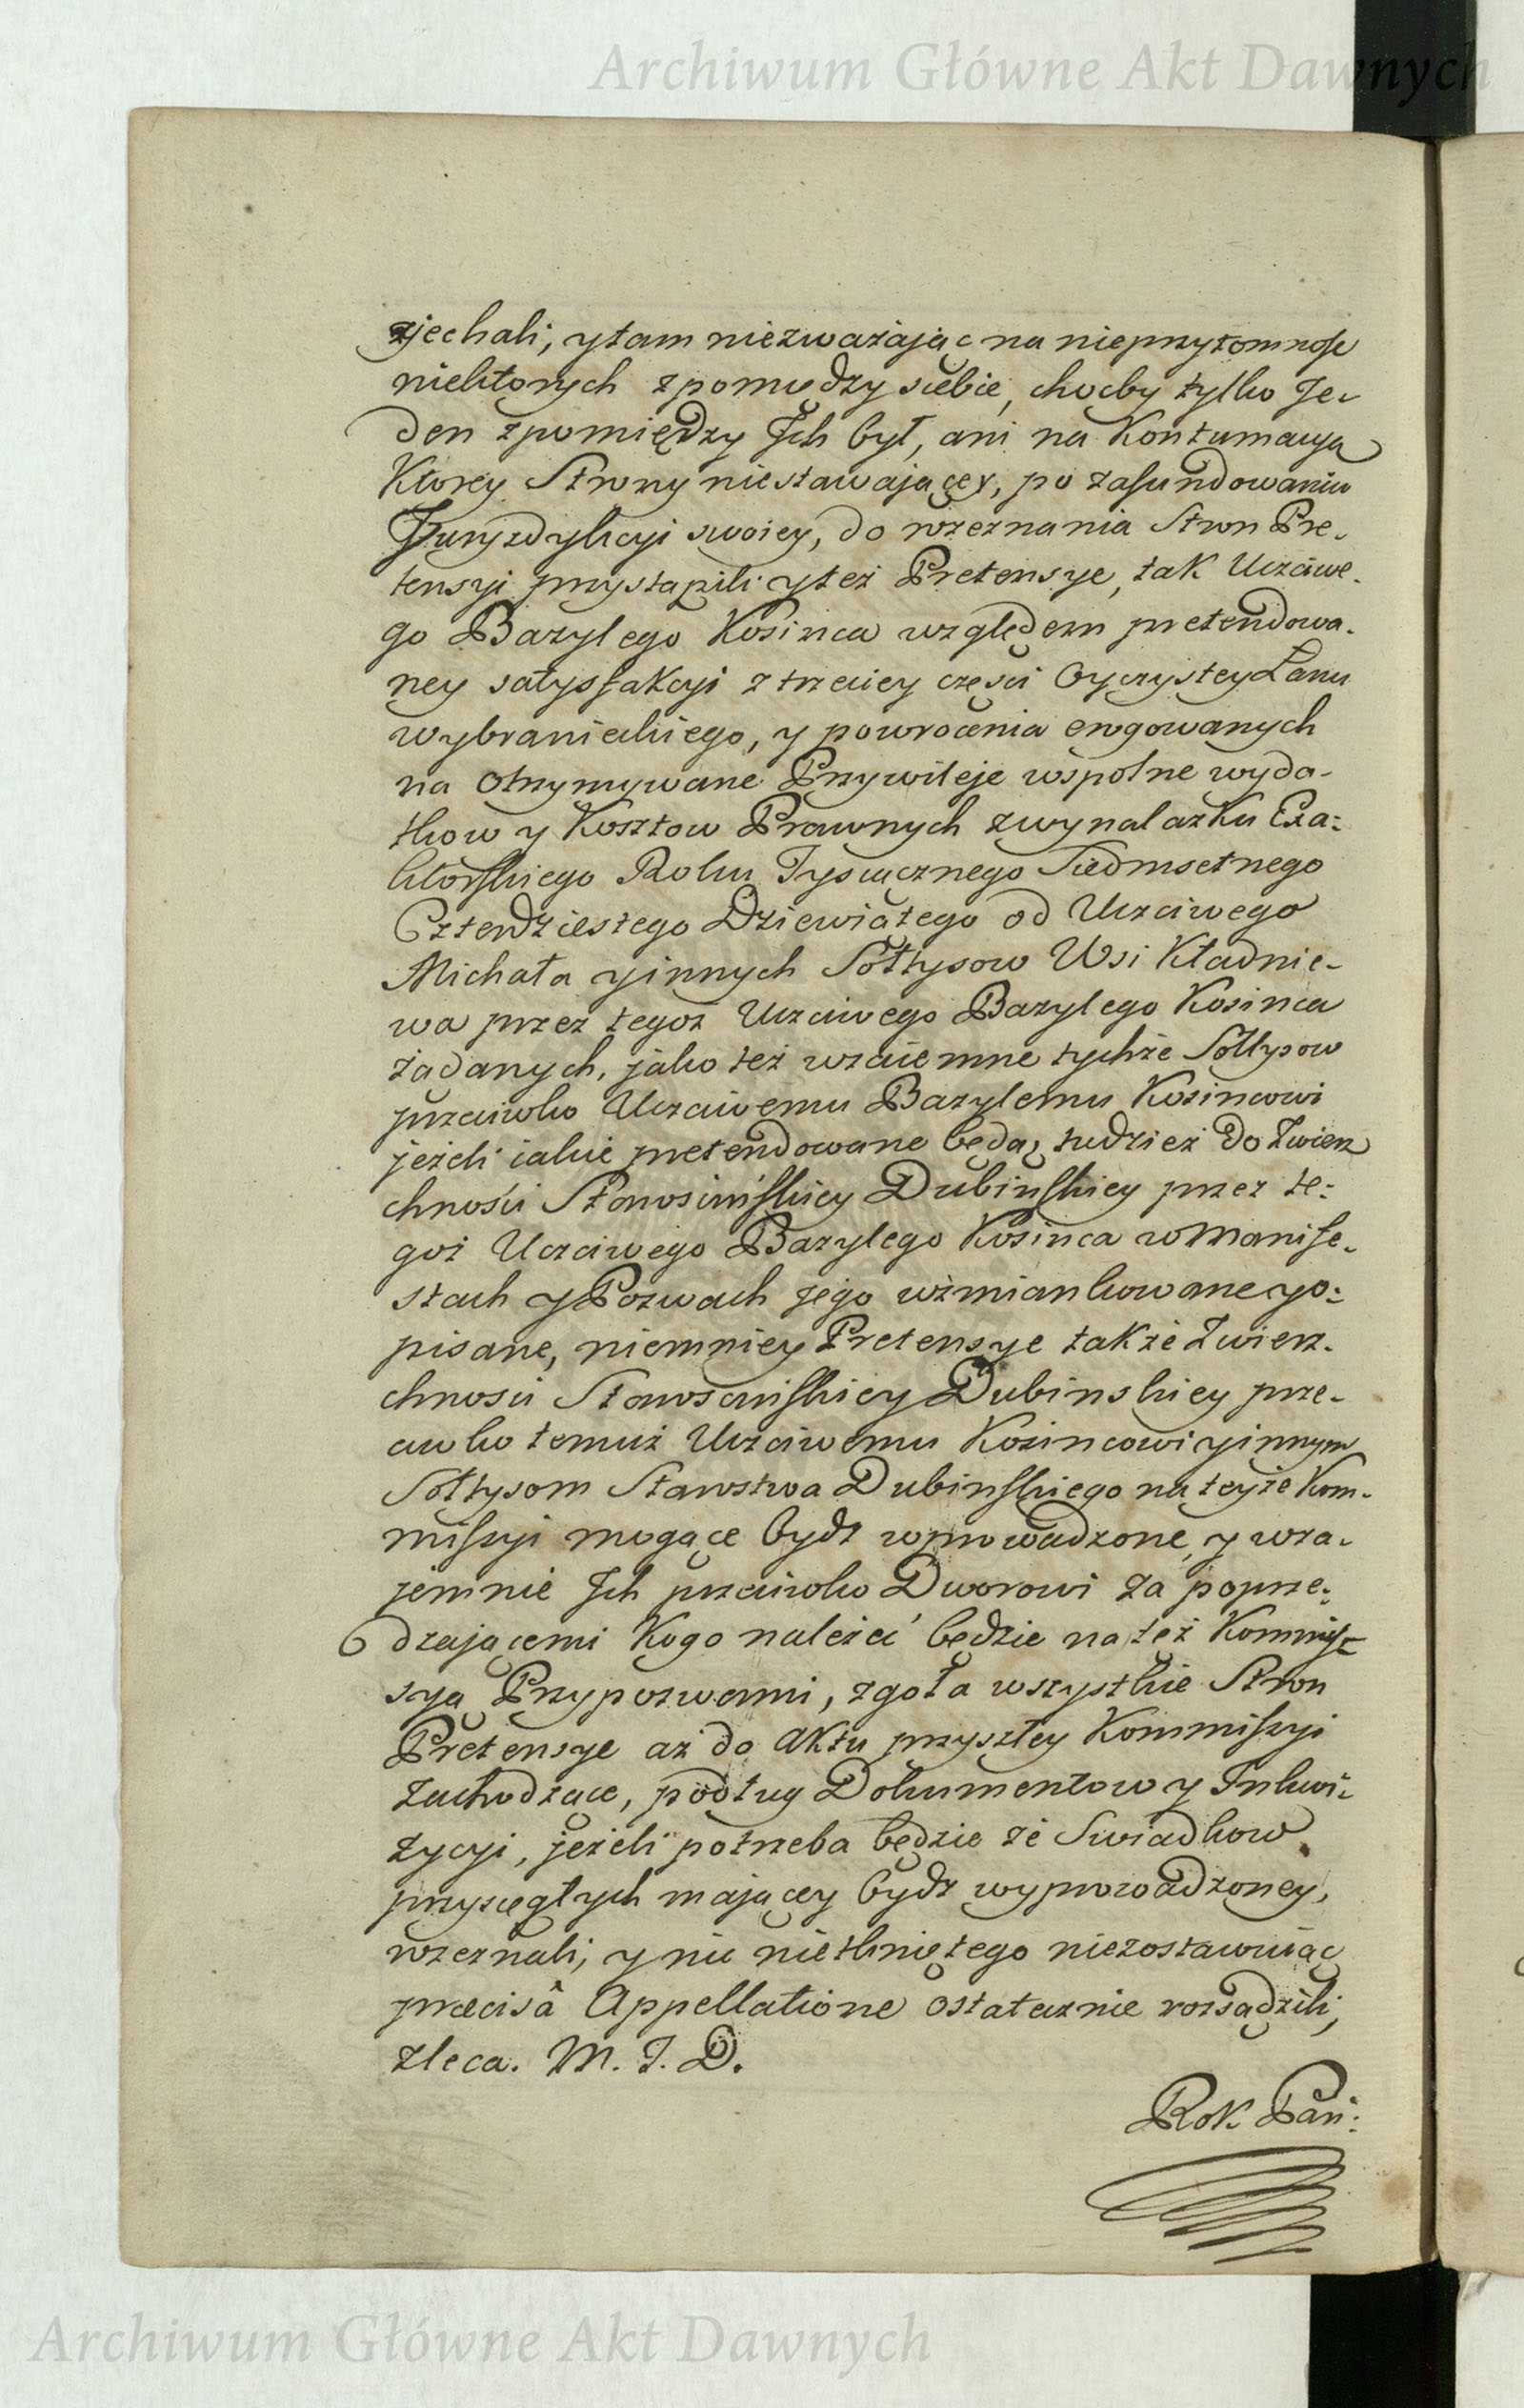 Archiwum Główne Akt Dawnych
zjechali, y tam niezważając na nieprzytomność
niektorych z pomiędzy siebie, choćby tylko Je-
den z pomiędzy Ich był, ani na Kontumacyą
Ktorey Strony niestawaiącey, po zafundowaniu
Juryzdykcyi swoiey, do rozeznania Stron Pre-
tensyi przystąpili y też Pretensye, tak Uczciwe-
go Bazylego Kosinca względem pretendowa-
ney satysfakcyi z trzeciey części Oyczystey Łanu
wybranieckiego, y powrocenia erogowanych
na otrzymywane Przywileje wspolne wyda-
tkow y Kosztow Prawnych z wynalazku Exa-
ktorskiego Roku Tysiącznego Siedmsetnego
Czterdziestego Dziewiątego od Uczciwego
Michała y innych Sołtysow Wsi Kładnie-
wa przez tegoż Uczciwego Bazylego Kosinca
żądanych, jako też wzaiemne tychże Sołtysow
przeciwko Uczciwemu Bazylemu Kosincowi
jeżeli iakie pretendowane będą, tudzież do Zwierz
chności Starościńskiey Dubinskiey przez te-
goż Uczciwego Bazylego Kosinca w Manife-
stach y Pozwach Jego wzmiankowane y o-
pisane, niemniey Pretensye także Zwierz-
chności Starościńskiey Dubinskiey prze-
ciwko temuż Uczciwemu Kosincowi y innym
Sołtysom Starostwa Dubinskiego na teyże Kom-
missyi mogące bydź wprowadzone, y wza-
jemnie Ich przeciwko Dworowi za poprze-
dzaiącemi Kogo należeć będzie na też Kommis-
syą Przypozwami, zgoła wszystkie Stron
Pretensye aż do aktu przyszłey Kommissyi
zachodzące, podług Dokumentow y Inkwi-
zycyi, jeżeli potrzeba będzie ze Swiadkow
przysięgłych maiącey bydź wyprowadzoney,
rozeznali, y nic nietkniętego niezostawuiąc
præcisâ Appellatione ostatecznie rozsądzili,
zleca. M. J. D.
Rok Pań:
Archiwum Główne Akt Dawnych